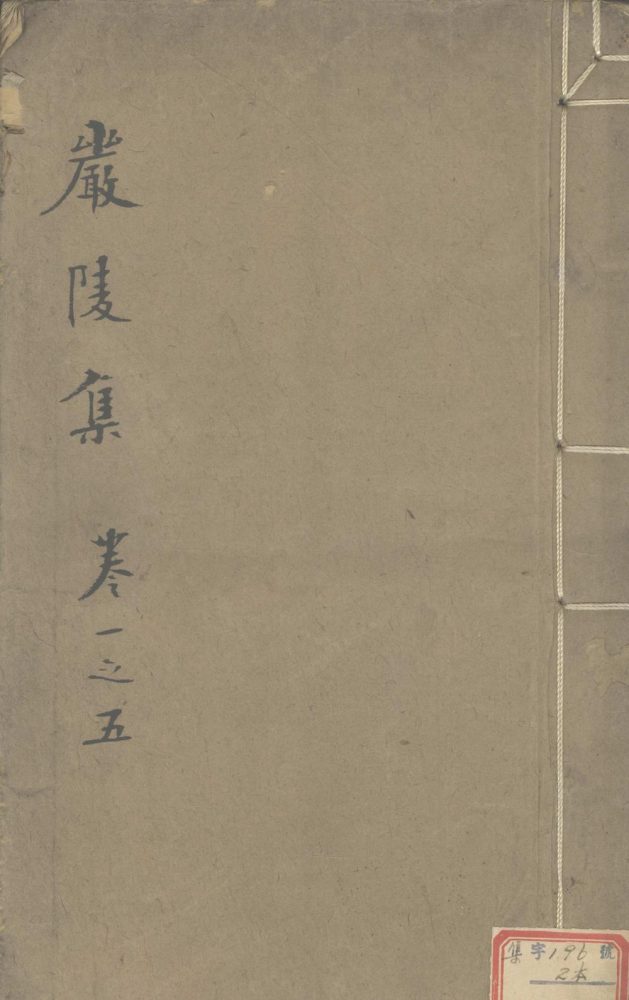 巖陵集 卷一之五
集字196號
2本